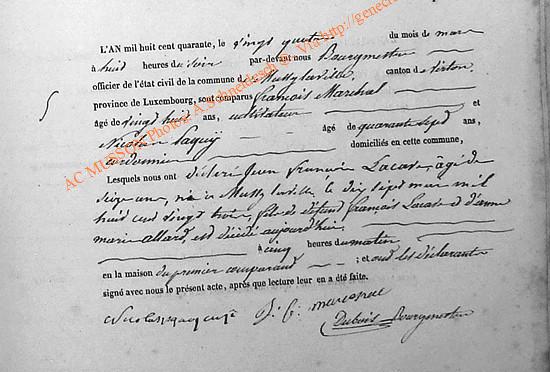 L'AN mil huit cent quarante, le vingt quatre du mois de mars
à huit heures du soir par-devant nous Bourgmestre
officier de l'état civil de la commune de Mussy la ville canton de Virton
province de Luxembourg, sont comparus François Marchal
âgé de vingt huit ans, cultivateur et
Nicolas Jaquy âgé de quarante sept ans,
cordonnier domiciliés en cette commune,
Lesquels nous ont déclaré Jean François Lacave, âgé de
seize ans, né à Mussy la ville le dix sept mars mil
huit cent vingt trois, fils de défunt François Lacave et d'anne
marie allard, est décédé aujourd'hui
à cinq heures du matin
en la maison du premier comparant ; et ont les déclarants
signé avec nous le présent acte, après que lecture leur en a été faite.
Dubois Bourgmestre
AC MUSSON Photos: A. Schneidesch gr. Via http://genec